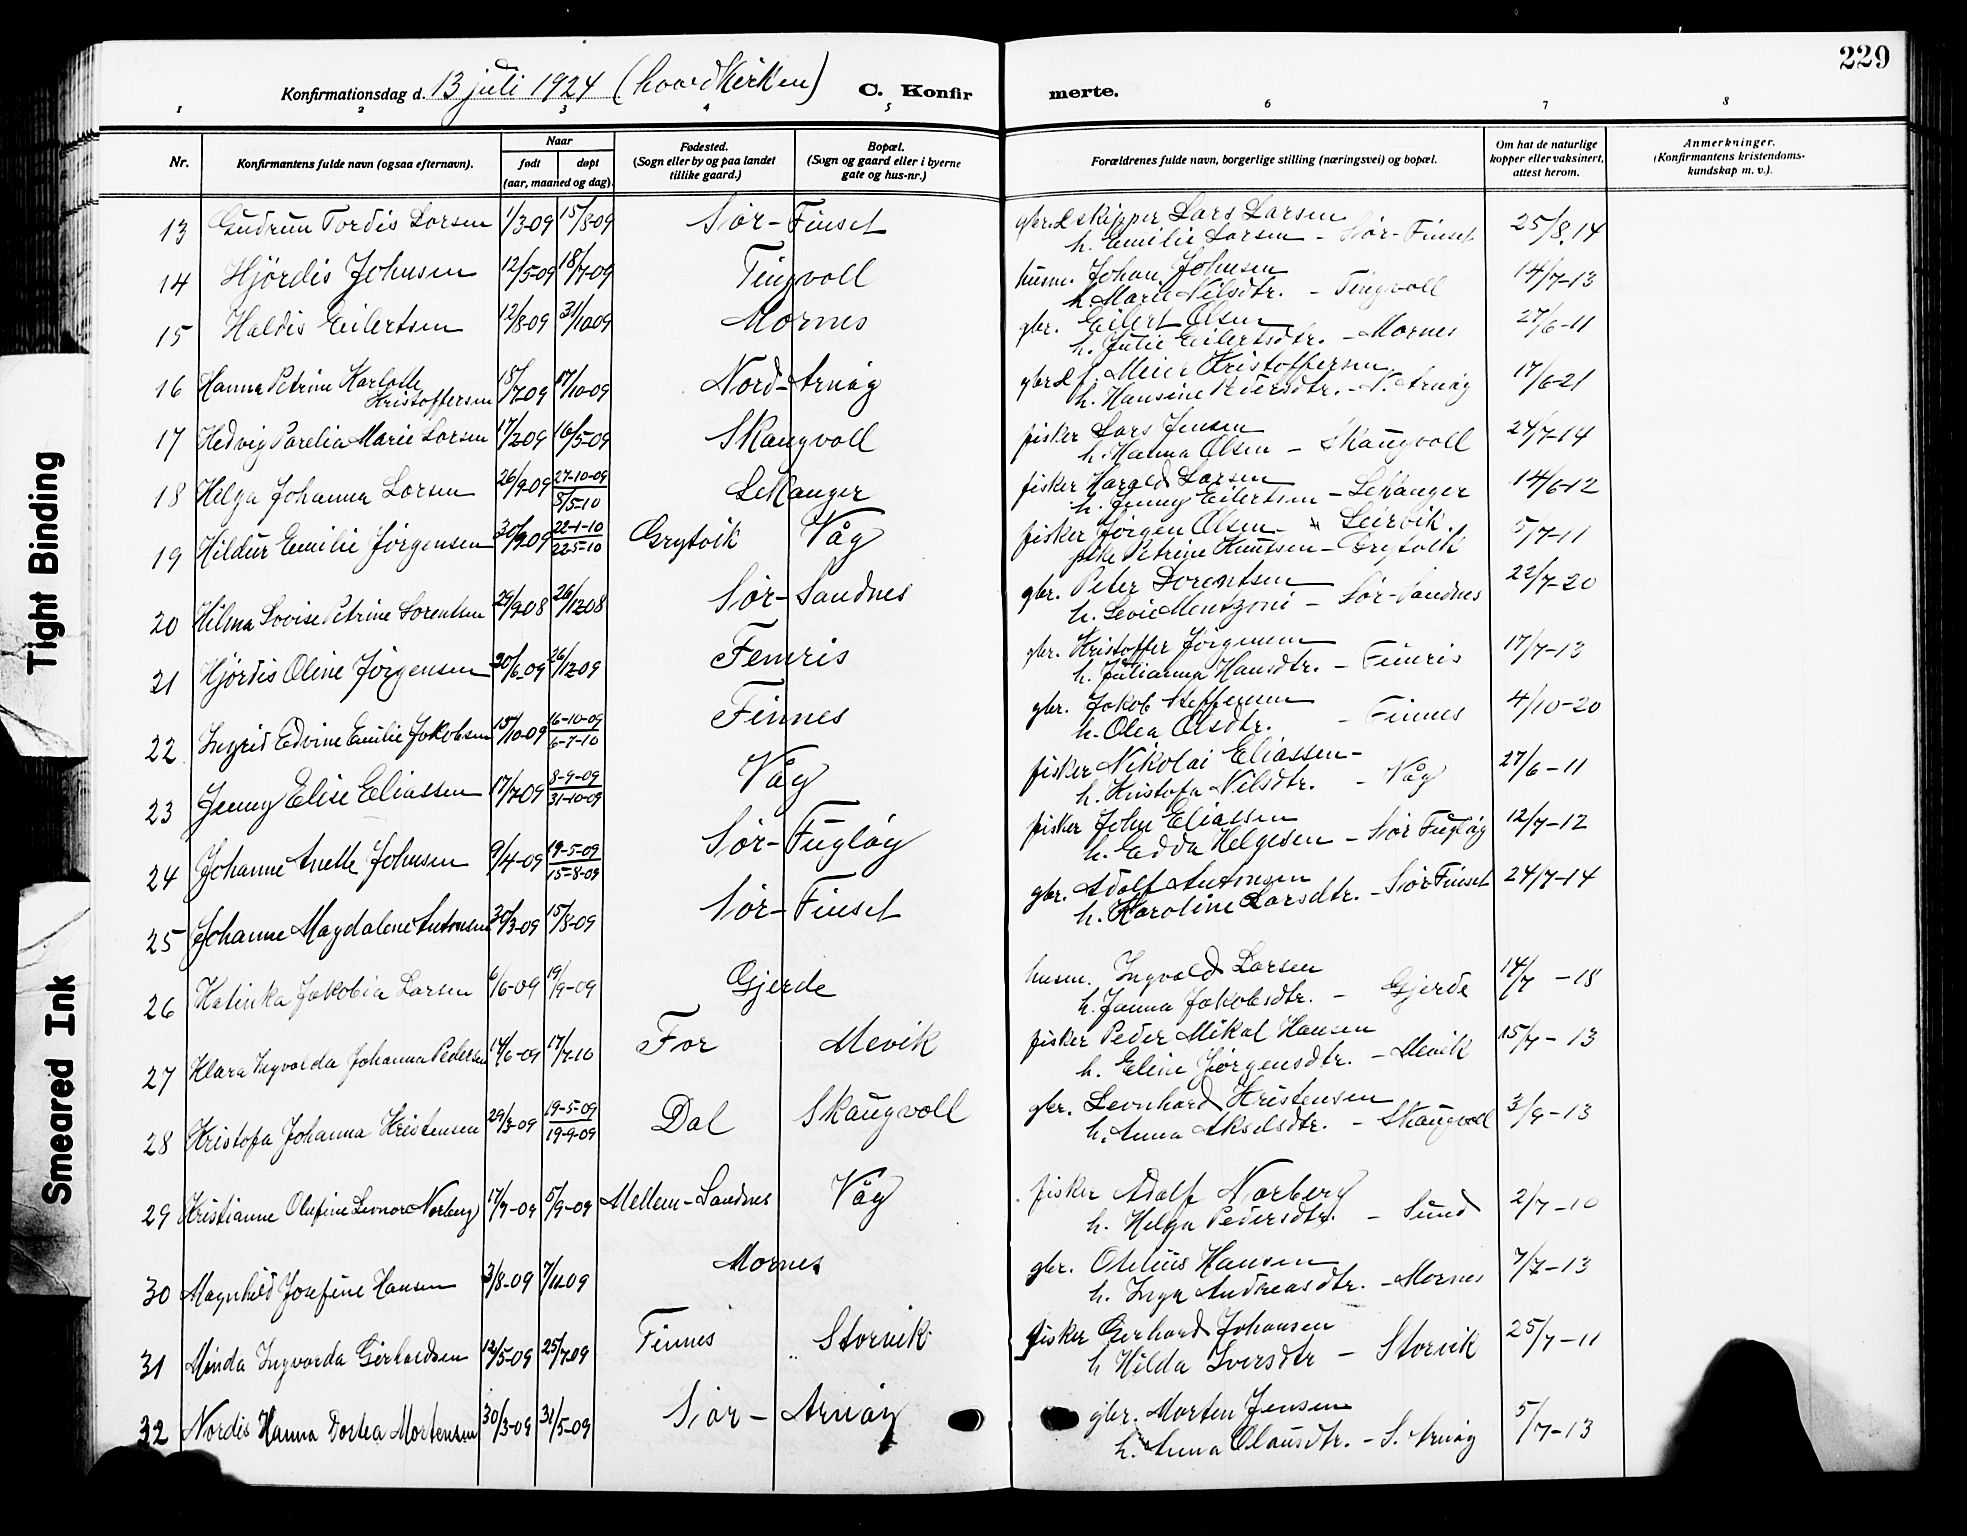 229
Konfirmationsdag d. 13 juli 1924 (hovedkirken) C. Konfirmerte.
1 2 3 4 5 6 7 8
Nr.
Konfirmantens fulde navn (ogsaa efternavn).
Naar
født døpt
(aar, maaned og dag).
Fødested.
(Sogn eller by og paa landet
tillike gaard.)
Bopæl.
(Sogn og gaard eller i byerne
gate og hus-nr.)
Forældrenes fulde navn, borgerlige stilling (næringsvei) og bopæl.
Om hat de naturlige
kopper eller vaksinert,
attest herom.
Anmerkninger.
(Konfirmantens kristendoms-
kundskap m. v.).
13 Gudrun Tordis Larsen 1/3-09 15/8-09 Sør-Finset gbr. & skipper Lars Larsen 25/8.14
h. Emilie Larsen - Sør-Finset
14 Hjördis Johnsen 12/5-09 18/7-09 Tingvoll husm. Johan Johnsen 14/7-13
h. Marie Nilsdtr. - Tingvoll
15 Haldis Eilertsen 12/8-09 31/10 09 Mornes gbr. Eilert Olsen 27/6-11
h. Julie Eilertsdtr. - Mornes
16 Hanna Petrine Karlotte 15/7 09 17/10-09 Nord-Arnøy gbr. & f. Meier Kristoffersen 17/6-21
Kristoffersen h. Hansine Pedersdtr. - N. Arnøy
17 Hedvig Parelia Marie Larsen 17/2 09 16/5-09 Skaugvoll fisker Lars Jensen 24/7-14
h. Hanna Olsen - Skaugvoll
18 Helga Johanna Larsen 26/9-09 27-10-09 Lekanger fisker Harald Larsen 14/6-12
8/5-10 h. Jenny Eilertsen - Lekanger
19 Hildur Emilie Jørgensen 30/9-09 22-1-10 Grytvik Våg fisker Jørgen Olsen - Leirvik. 5/7-11
22 5-10 pike Petrine Knutsen - Grytvik
20 Hilma Lovise Petrine Lorentsen 29/9 08 26/12 08 Sør-Sandnes gbr. Peter Lorentsen 22/7-20
h. Levie Mentzoni - Sør-Sandnes
21 Hjördis Oline Jørgensen 30/6-09 26/12 09 Femris gbr. Kristoffer Jørgensen 17/7-13
h. Julianna Hansdtr. - Femris
22 Ingrid Edvine Emilie Jakobsen 15/10-09 16-10-09 Finnes gbr. Jakob Steffensen 4/10-20
6-7-10 h. Olea Olsdtr. - Finnes
23 Jenny Elise Eliassen 17/7-09 8-9-09 Våg fisker Nikolai Eliassen - 27/6-11
31-10-09 h. Kristofa Nilsdtr. - Våg
24 Johanne Anette Johnsen 9/4-09 19-5-09 Sør-Fugløy fisker John Eliassen 12/7-12
15-8-09 h. Edda Helgesen - Sør Fugløy
25 Johanne Magdalene Antonsen 30/3-09 15/8-09 Sør-Finset gbr. Adolf Antonsen 24/7-14
h. Karoline Larsdtr. - Sør Finset
26 Katinka Jakobia Larsen 6/6-09 19/9-09 Gjerde husm. Ingvald Larsen 14/7-18
h. Janna Jakobsdtr. - Gjerde
27 Klara Ingvarda Johanna Pedersen 14/6-09 17/7-10 For Mevik fisker Peder Mikal Hansen 15/7-13
h. Eline Jørgensdtr. - Mevik
28 Kristofa Johanna Kristensen 29/3-09 19-5-09 Dal Skaugvoll gbr. Leonhard Kristensen 3/9-13
19-9-09 h. Anna Akselsdtr. - Skaugvoll
29 Kristianne Olufine Leonore Norberg 17/7-09 5/9-09 Mellem-Sandnes Våg fisker Adolf Norberg 2/7-10
h. Helga Pedersdtr. - Sund
30 Magnhild Josefine Hansen 3/8-09 7/11 09 Mornes gbr. Otelius Hansen 7/7-13
h. Inga Andreasdtr. - Mornes
31 Minda Ingvarda Gerhardsen 12/5-09 25/7 09 Finnes Storvik fisker Gerhard Johansen 25/7-11
h Hilda Iversdtr - Storvik
32 Nordis Hanna Dortea Mortensen 30/3-09 31/5-09 Sør-Arnøy gbr. Morten Jensen 5/7-13
h. Anna Olausdtr. - S. Arnøy
Tight Binding
Smeared Ink